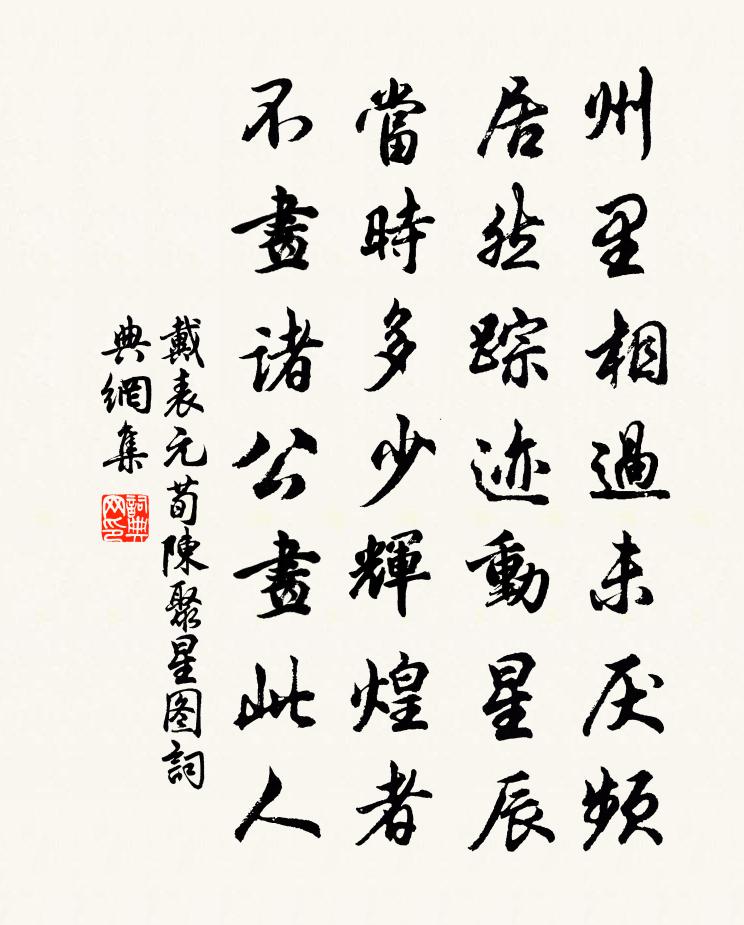 州里相過未厌頻
居然踪迹動星辰
當時多少輝煌者
不畫諸公畫此人
戴表元荀陳聚星图詞
典網集
詞典
网印